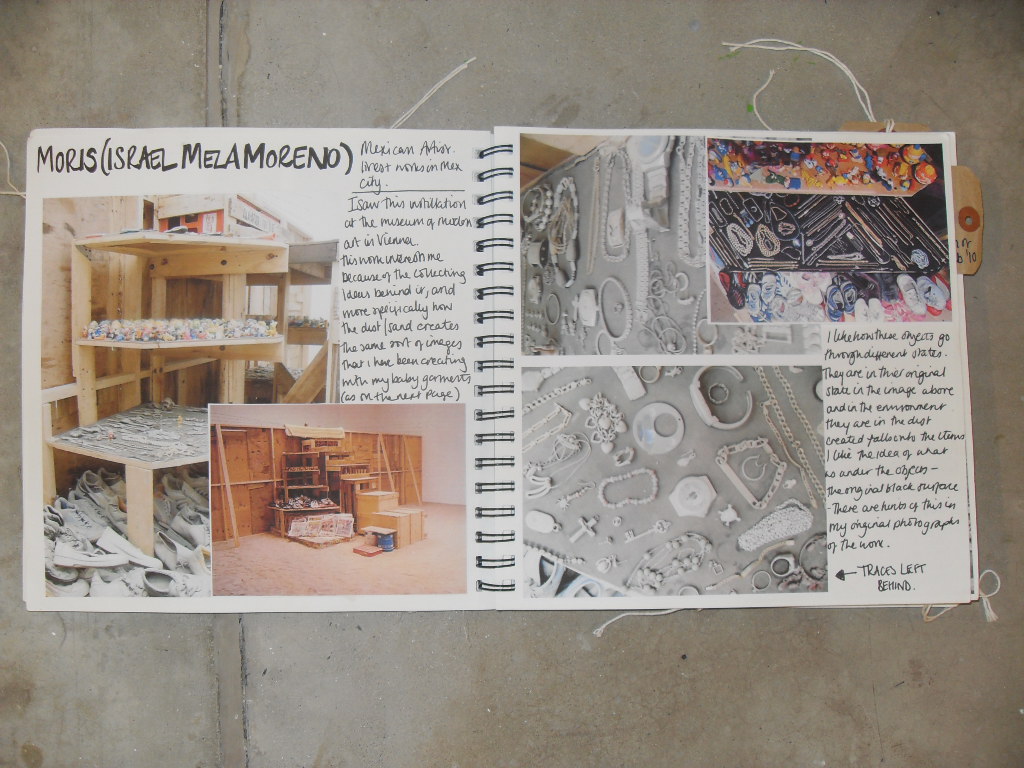 MORIS (ISRAEL MEZA MORENO)
Mexican Artist.
lives + works in Mex
city.
I saw this instillation
at the museum of modern
art in Vienna.
this work interests me
because of the collecting
ideas behind it, and
more specifically how
the dust/sand creates
the same sort of images
that I have been creating
with my baby garments
(as on the next page)
I like how these objects go
through different states.
They are in their original
state in the image above
and in the environment
they are in the dust
created falls onto the items
I like the idea of what
is under the objects -
the original black surface
- There are hints of this in
my original photographs
of the work.
← TRACES LEFT
BEHIND.
'10